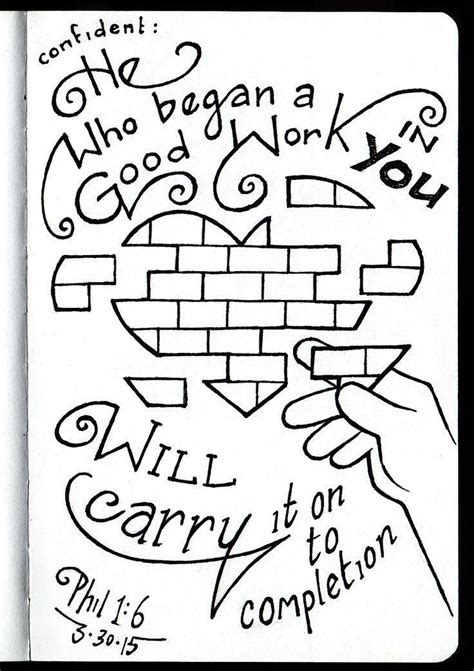 confident:
He
Who began a
Good Work IN
YOU
WILL
carry it on
to
completion
Phil 1:6
3·30·15